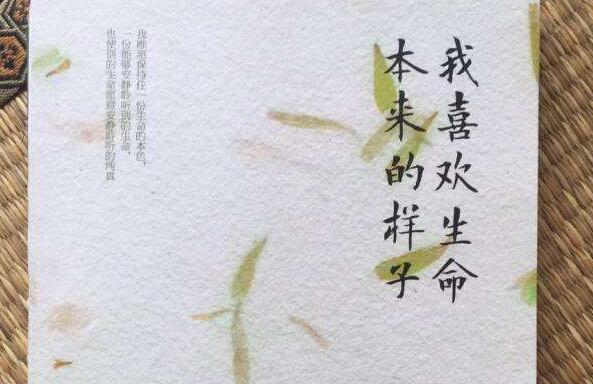 我喜欢生命
本来的样子
我唯愿保持住一份生命的本色，
一份能够安静聆听别的生命，
也使别的生命愿意安静聆听的纯真